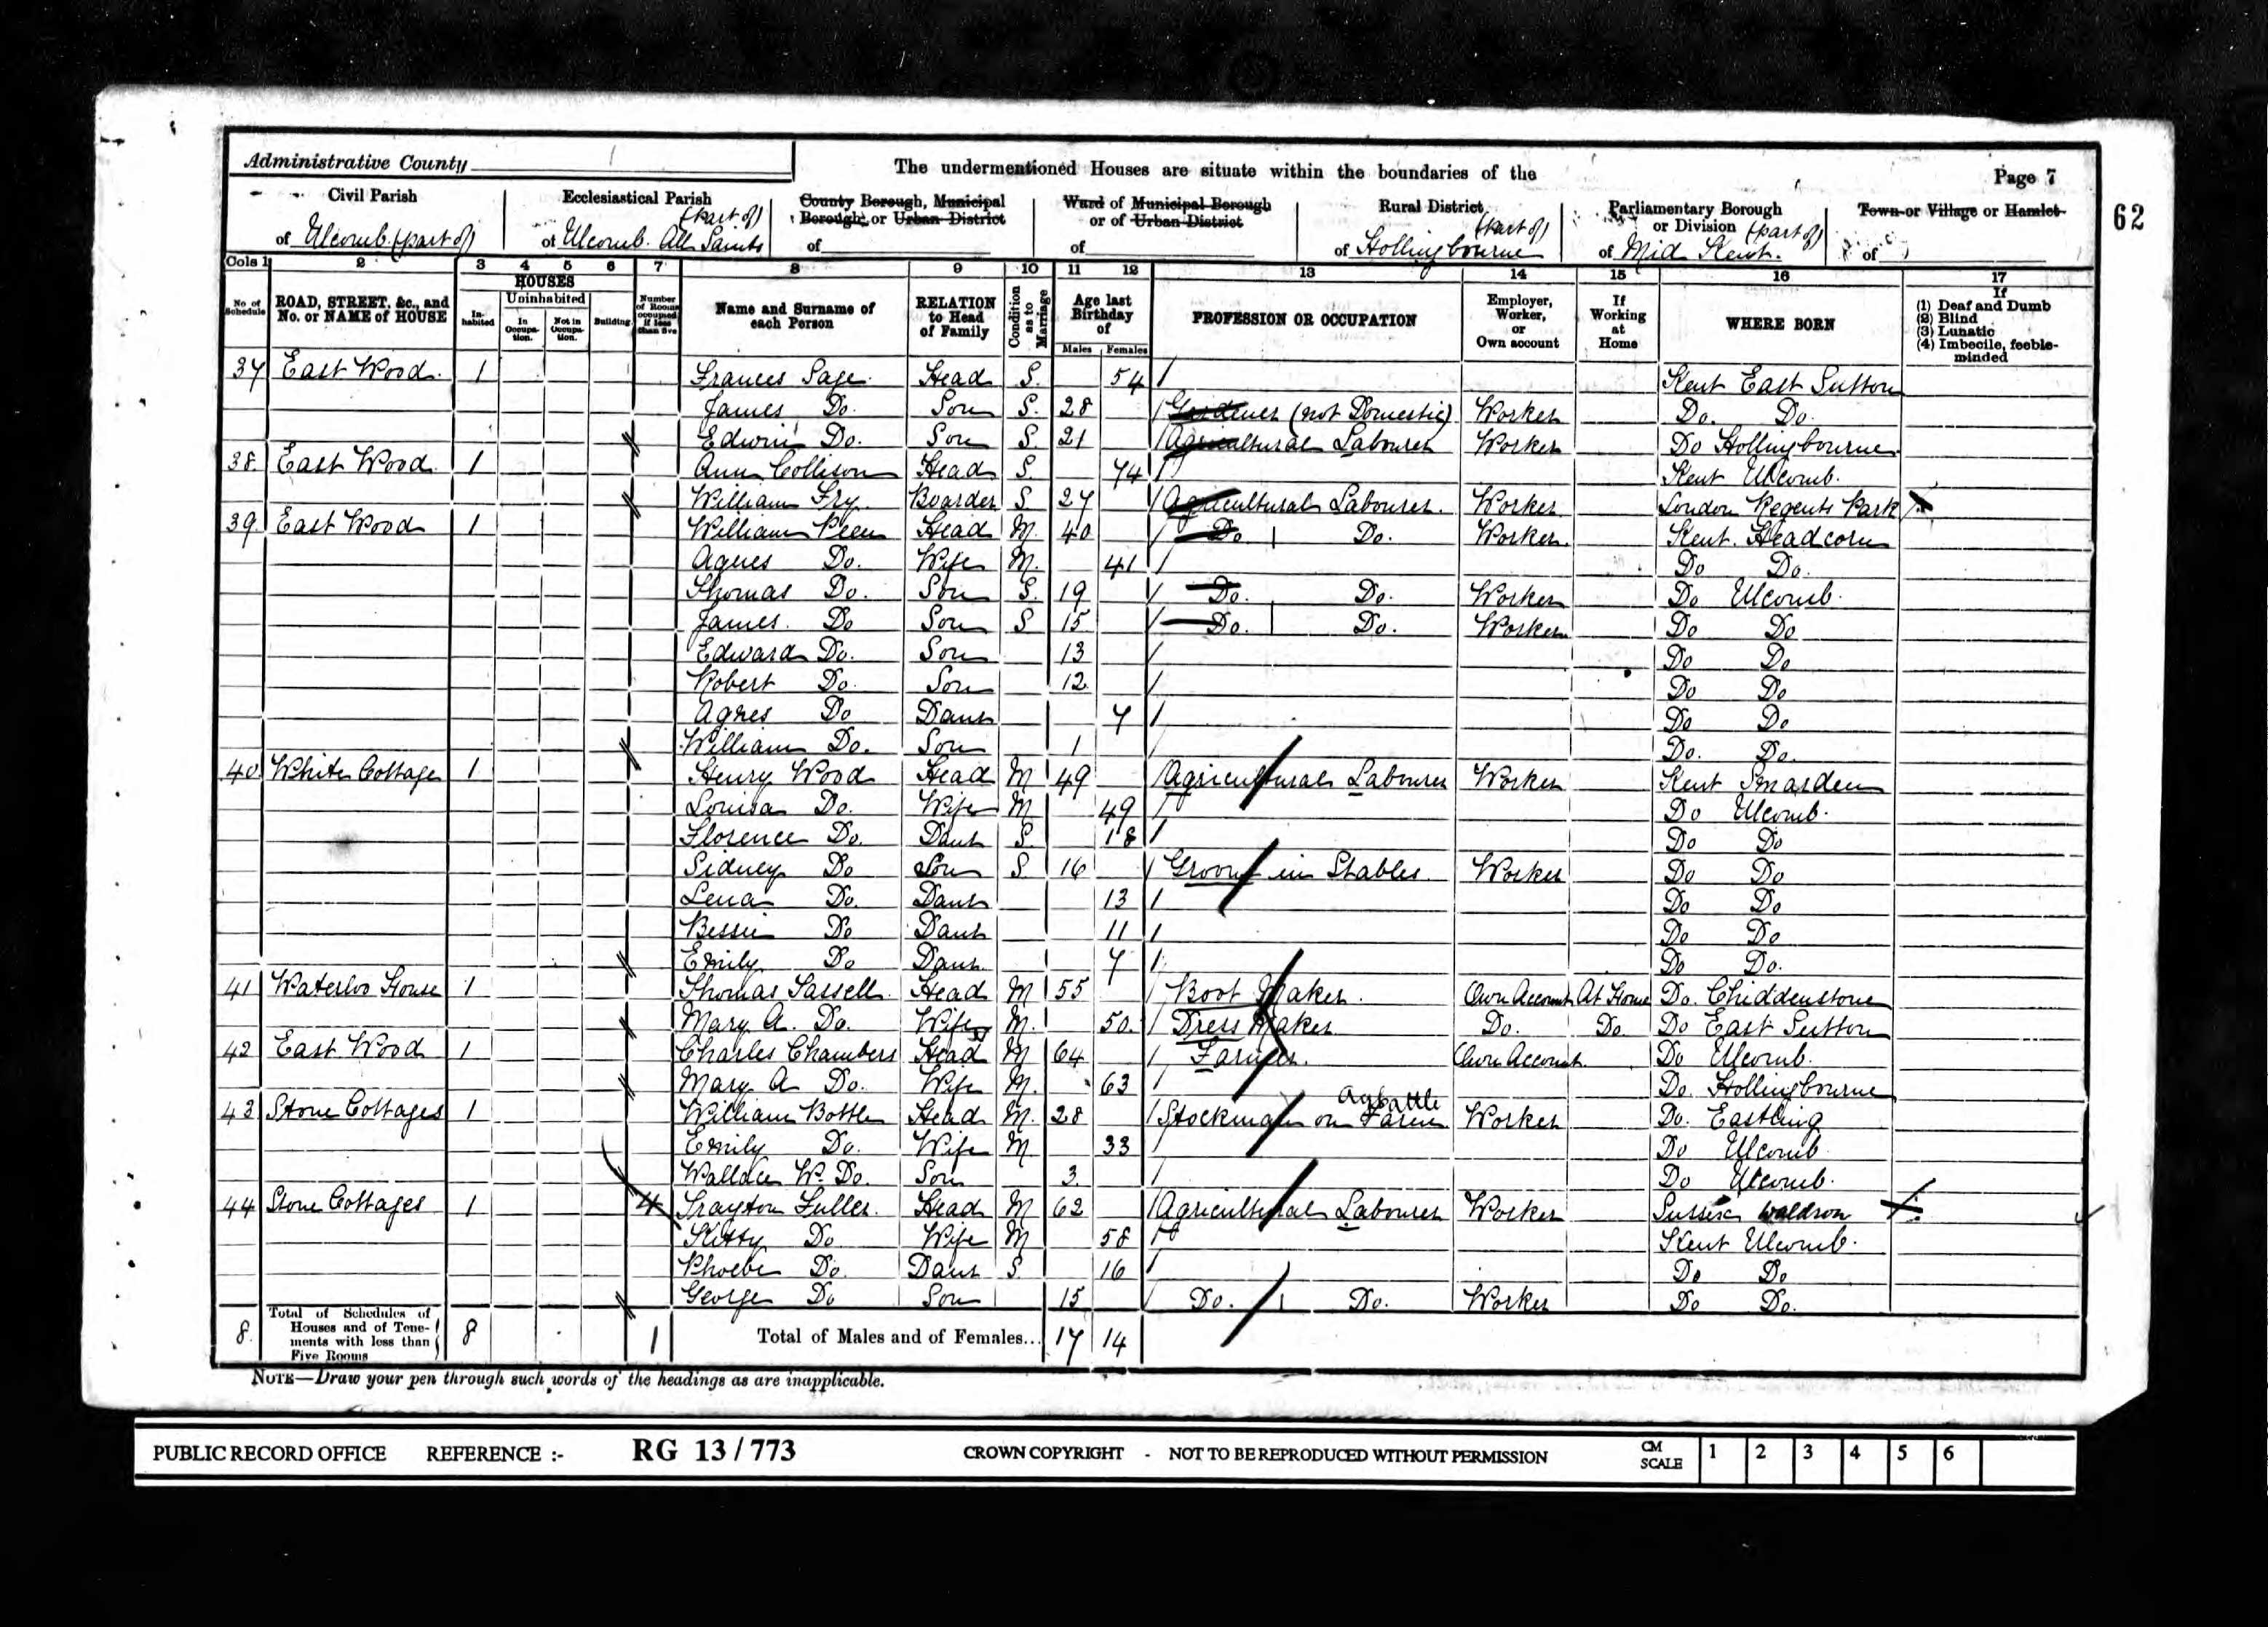 Administrative County
The undermentioned Houses are situate within the boundaries of the
Page 7
62
Civil Parish
of Ulcomb (part of)
Ecclesiastical Parish
(part of)
of Ulcomb. All Saints
County Borough, Municipal
Borough, or Urban District
of
Ward of Municipal Borough
or of Urban District
of
Rural District
(part of)
of Hollingbourne
Parliamentary Borough
or Division (part of)
of Mid Kent.
Town or Village or Hamlet
of
Cols 1 2 3 4 5 6 7 8 9 10 11 12 13 14 15 16 17
No of Schedule
ROAD, STREET, &c., and No. or NAME of HOUSE
HOUSES
Inhabited
Uninhabited
In Occupation.
Not in Occupation.
Building
Number of Rooms occupied if less than five
Name and Surname of each Person
RELATION to Head of Family
Condition as to Marriage
Age last Birthday of
Males Females
PROFESSION OR OCCUPATION
Employer, Worker, or Own account
If Working at Home
WHERE BORN
If
(1) Deaf and Dumb
(2) Blind
(3) Lunatic
(4) Imbecile, feeble-minded
37 East Wood. 1 Frances Sage Head S. 54 Kent East Sutton
James Do. Son S. 28 Gardener (not Domestic) Worker Do. Do.
Edwin Do. Son S. 21 Agricultural Labourer Worker Do Hollingbourne
38. East Wood 1 Ann Collison Head S. 74 Kent Ulcomb.
William Fry Boarder S 27 Agricultural Labourer. Worker London Regents Park
39. East Wood 1 William Peen Head M. 40 Do Do. Worker. Kent. Headcorn
Agnes Do. Wife M. 41 Do Do.
Thomas Do. Son S. 19 Do. Do. Worker Do Ulcomb.
James. Do Son S 15 Do. Do. Worker Do Do
Edward Do. Son 13 Do Do
Robert Do. Son 12 Do Do
Agnes Do Daur 7 Do Do
William Do. Son 1 Do. Do.
40 White Cottage 1 Henry Wood Head M 49 Agricultural Labourer Worker Kent Smarden
Louisa Do. Wife M 49 Do Ulcomb.
Florence Do. Daur S. 18 Do Do
Sidney Do Son S 16 Groom in Stables. Worker Do Do
Lena Do. Daur 13 Do Do
Bessie Do Daur 11 Do Do
Emily Do Daur 7 Do Do.
41 Waterloo House 1 Thomas Sassell Head M 55 Boot Maker. Own Account At Home Do. Chiddenstone
Mary A. Do. Wife M. 50. Dress Maker Do. Do. Do East Sutton
42 East Wood 1 Charles Chambers Head M 64 Farmer. Own Account. Do Ulcomb.
Mary A Do. Wife M. 63 Do. Hollingbourne
43 Stone Cottages 1 William Bottle Head M. 28 Stockman on Farm Worker Do. Eastling
Emily Do. Wife M 33 Do Ulcomb
Wallace W. Do. Son 3. Do Ulcomb.
44 Stone Cottages 1 4 Trayton Fuller. Head M 62 Agricultural Labourer Worker Sussex Waldron
Kitty Do Wife M 58 Kent Ulcomb.
Phoebe Do. Daur S 16 Do Do
George Do Son 15 Do. Do. Worker Do Do.
8. Total of Schedules of Houses and of Tenements with less than Five Rooms 8 1 Total of Males and of Females... 17 14
NOTE—Draw your pen through such words of the headings as are inapplicable.
PUBLIC RECORD OFFICE REFERENCE :- RG 13/773 CROWN COPYRIGHT - NOT TO BE REPRODUCED WITHOUT PERMISSION CM SCALE 1 2 3 4 5 6